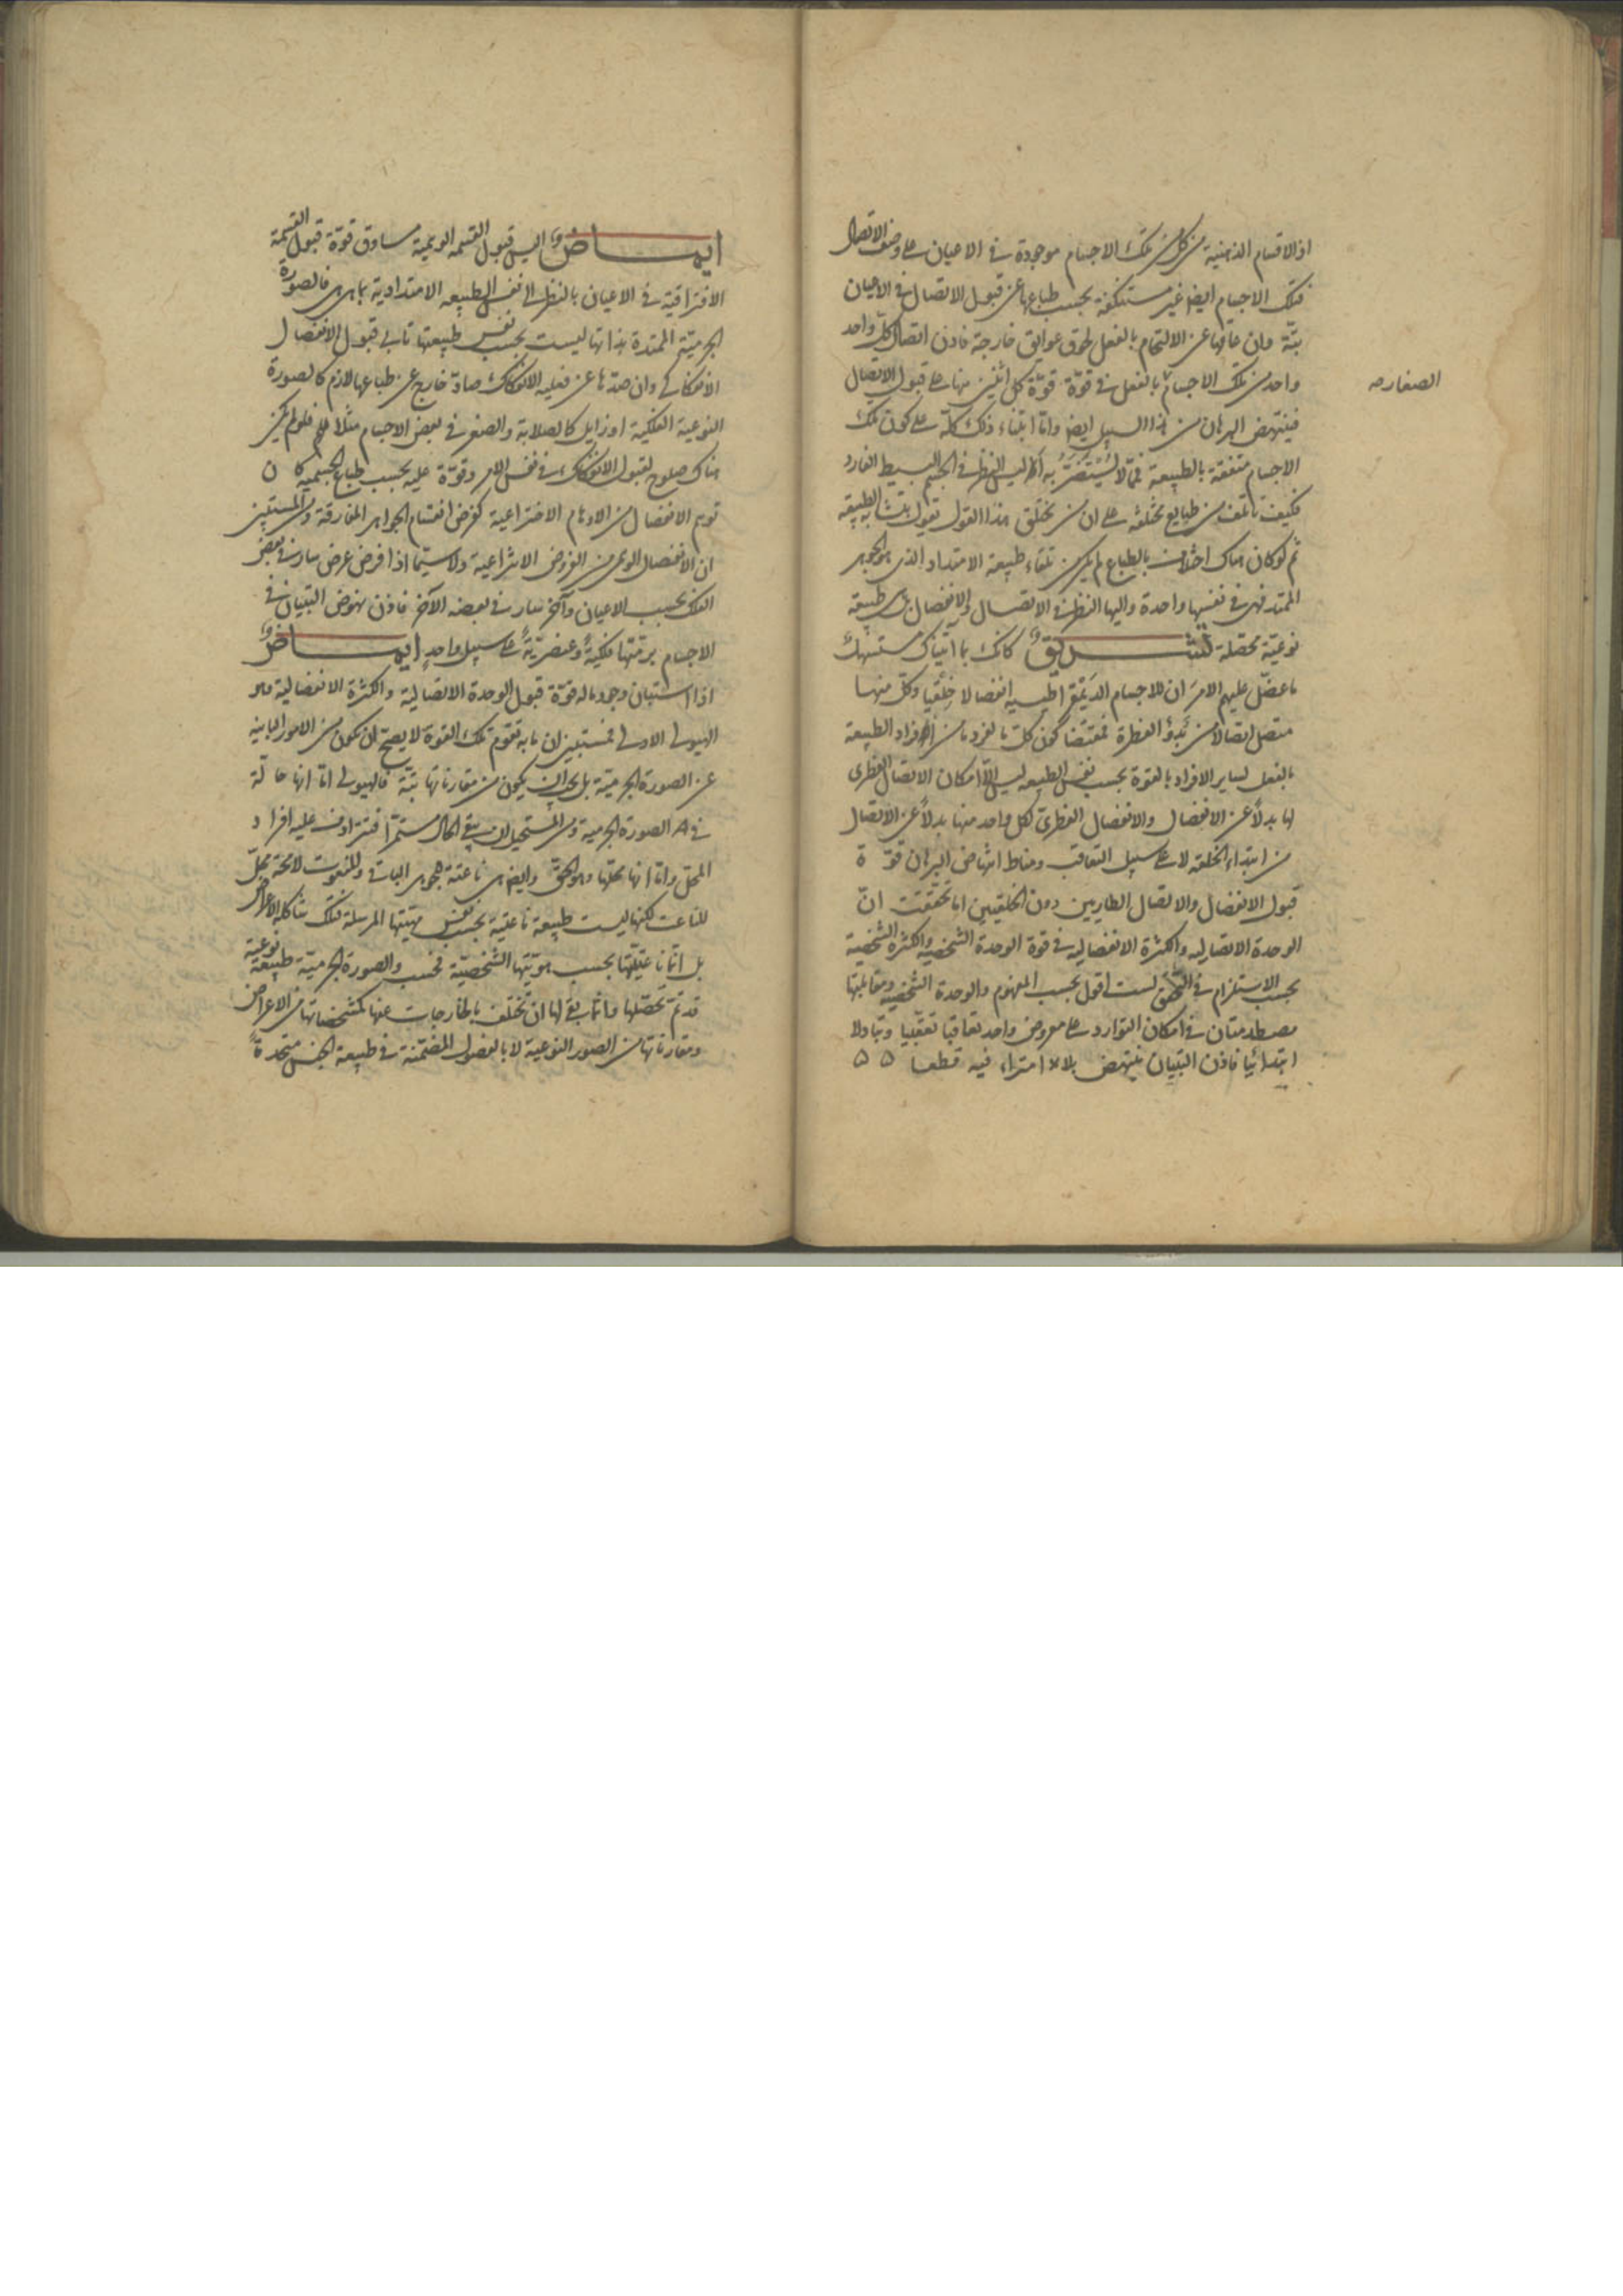 اذ الاقسام الذهنية من كل من تلك الاجسام موجودة في الاعيان على وصف الاتصال
فتلك الاجسام ايضا غير مستنكفة بحسب طباعها عن قبول الاتصال في الاعيان
بتة وان عاقها عن الالتحام بالفعل لحوق عوايق خارجة فاذن اتصال كل واحد
واحد من تلك الاجسام بالفعل في قوة قوة كل اثنين منها على قبول الاتصال
الصغار صه
فينتهض البرهان من هذا السبيل ايضا واما ابتناء ذلك كله على كون تلك
الاجسام متفقة بالطبيعة فمما لا يستضر به اليس النظر في الجسم البسيط الفارد
فكيف تأتلف من طبايع مختلفة على ان من يختلق هذا القول يقول بتشابه الطبيعة
ثم لو كان هناك اختلاف بالطباع لم يكن تلقاء طبيعة الامتداد الذي هو الجوهر
الممتد فهي في نفسها واحدة واليها النظر في الاتصال والانفصال بل هي طبيعة
نوعية محصلة تشريق كانك بما اتيناك مستسهل
ما عضل عليهم الامر ان للاجسام الديمقراطيسية انفصالا خلقيا وكل منها
متصل اتصالا من بدو الفطرة فمقتضا كون كل ما لفرد ما من افراد الطبيعة
بالفعل لساير الافراد بالقوة بحسب نفس الطبيعه ليس الا امكان الاتصال الفطرى
لها بدلا عن الانفصال والانفصال الفطرى لكل واحد منها بدلا عن الاتصال
من ابتداء الخلقه لا على سبيل التعاقب ومناط انتهاض البرهان قوة
قبول الانفصال والاتصال الطاريين دون الخلقيين اما تحققت ان
الوحدة الاتصاليه والكثرة الانفصاليه في قوة الوحدة الشخصيه والكثرة الشخصية
بحسب الاستلزام في التحقق لست اقول بحسب المفهوم والوحدة الشخصية ومقابلتها
مصطدمتان في امكان التوارد على معروض واحد تعاقبا تعقبيا وتبادلا
ابتدائيا فاذن التبيان ينتهض بلا امتراء فيه قطعا ه ه
ايماض اليس قبول القسمه الوهمية مساوق قوة قبول القسمة
الافتراقية في الاعيان بالنظر الى نفس الطبيعه الامتدادية بما هي هي فالصورة
الجرمية الممتدة بذاتها ليست بحسب نفس طبيعتها تابى قبول الانفصال
الانفكاكي وان صدها عن فعليه الانفكاك صاد خارج عن طباعها لازم كالصورة
النوعية الفلكية او زايل كالصلابة والصغر في بعض الاجسام مثلا فلو لم يكن
هناك صلوح لقبول الانفكاك في نفس الامر وقوة عليه بحسب طباع الجسميه كان
توهم الانفصال من الاوهام الاختراعية كفرض انقسام الجواهر المفارقة ومن المستبين
ان الانفصال الوهمى من الفروض الانتزاعية ولا سيما اذا فرض عرض سار في بعض
الفلك بحسب الاعيان وآخر سار في بعضه الآخر فاذن نهوض التبيان في
الاجسام برمتها فلكية وعنصرية على سبيل واحد ايماض
اذا استبان وجود ما له قوة قبول الوحدة الاتصالية والكثرة الانفصالية وهو
الهيولى الاولى فمستبين ان ما به تقوم تلك القوة لا يصح ان يكون من الامور المباينة
عن الصورة الجرمية بل يجب ان يكون من مقارناتها بتة فالهيولى اما انها حالة
في الصورة الجرمية ومن المستحيل ان يبقى الحال مستمرا فتترادف عليه افراد
المحل واما انها محلها وهو الحق وايضا هي ناعتة بجوهر البات والمنعوت لا محة محل
للناعت لكنها ليست طبيعة ناعتية بحسب نفس مهيتها المرسلة فتلك شاكلة الاعراض
بل انما ناعتيتها بحسب هويتها الشخصية فحسب والصورة الجرمية طبيعة نوعية
قد تم تحصلها وانما بقى لها ان تختلف بالخارجات عنها كمشخصاتها من الاعراض
ومقارناتها من الصور النوعية لا بالفصول المضمنة في طبيعة الجنس متحدة